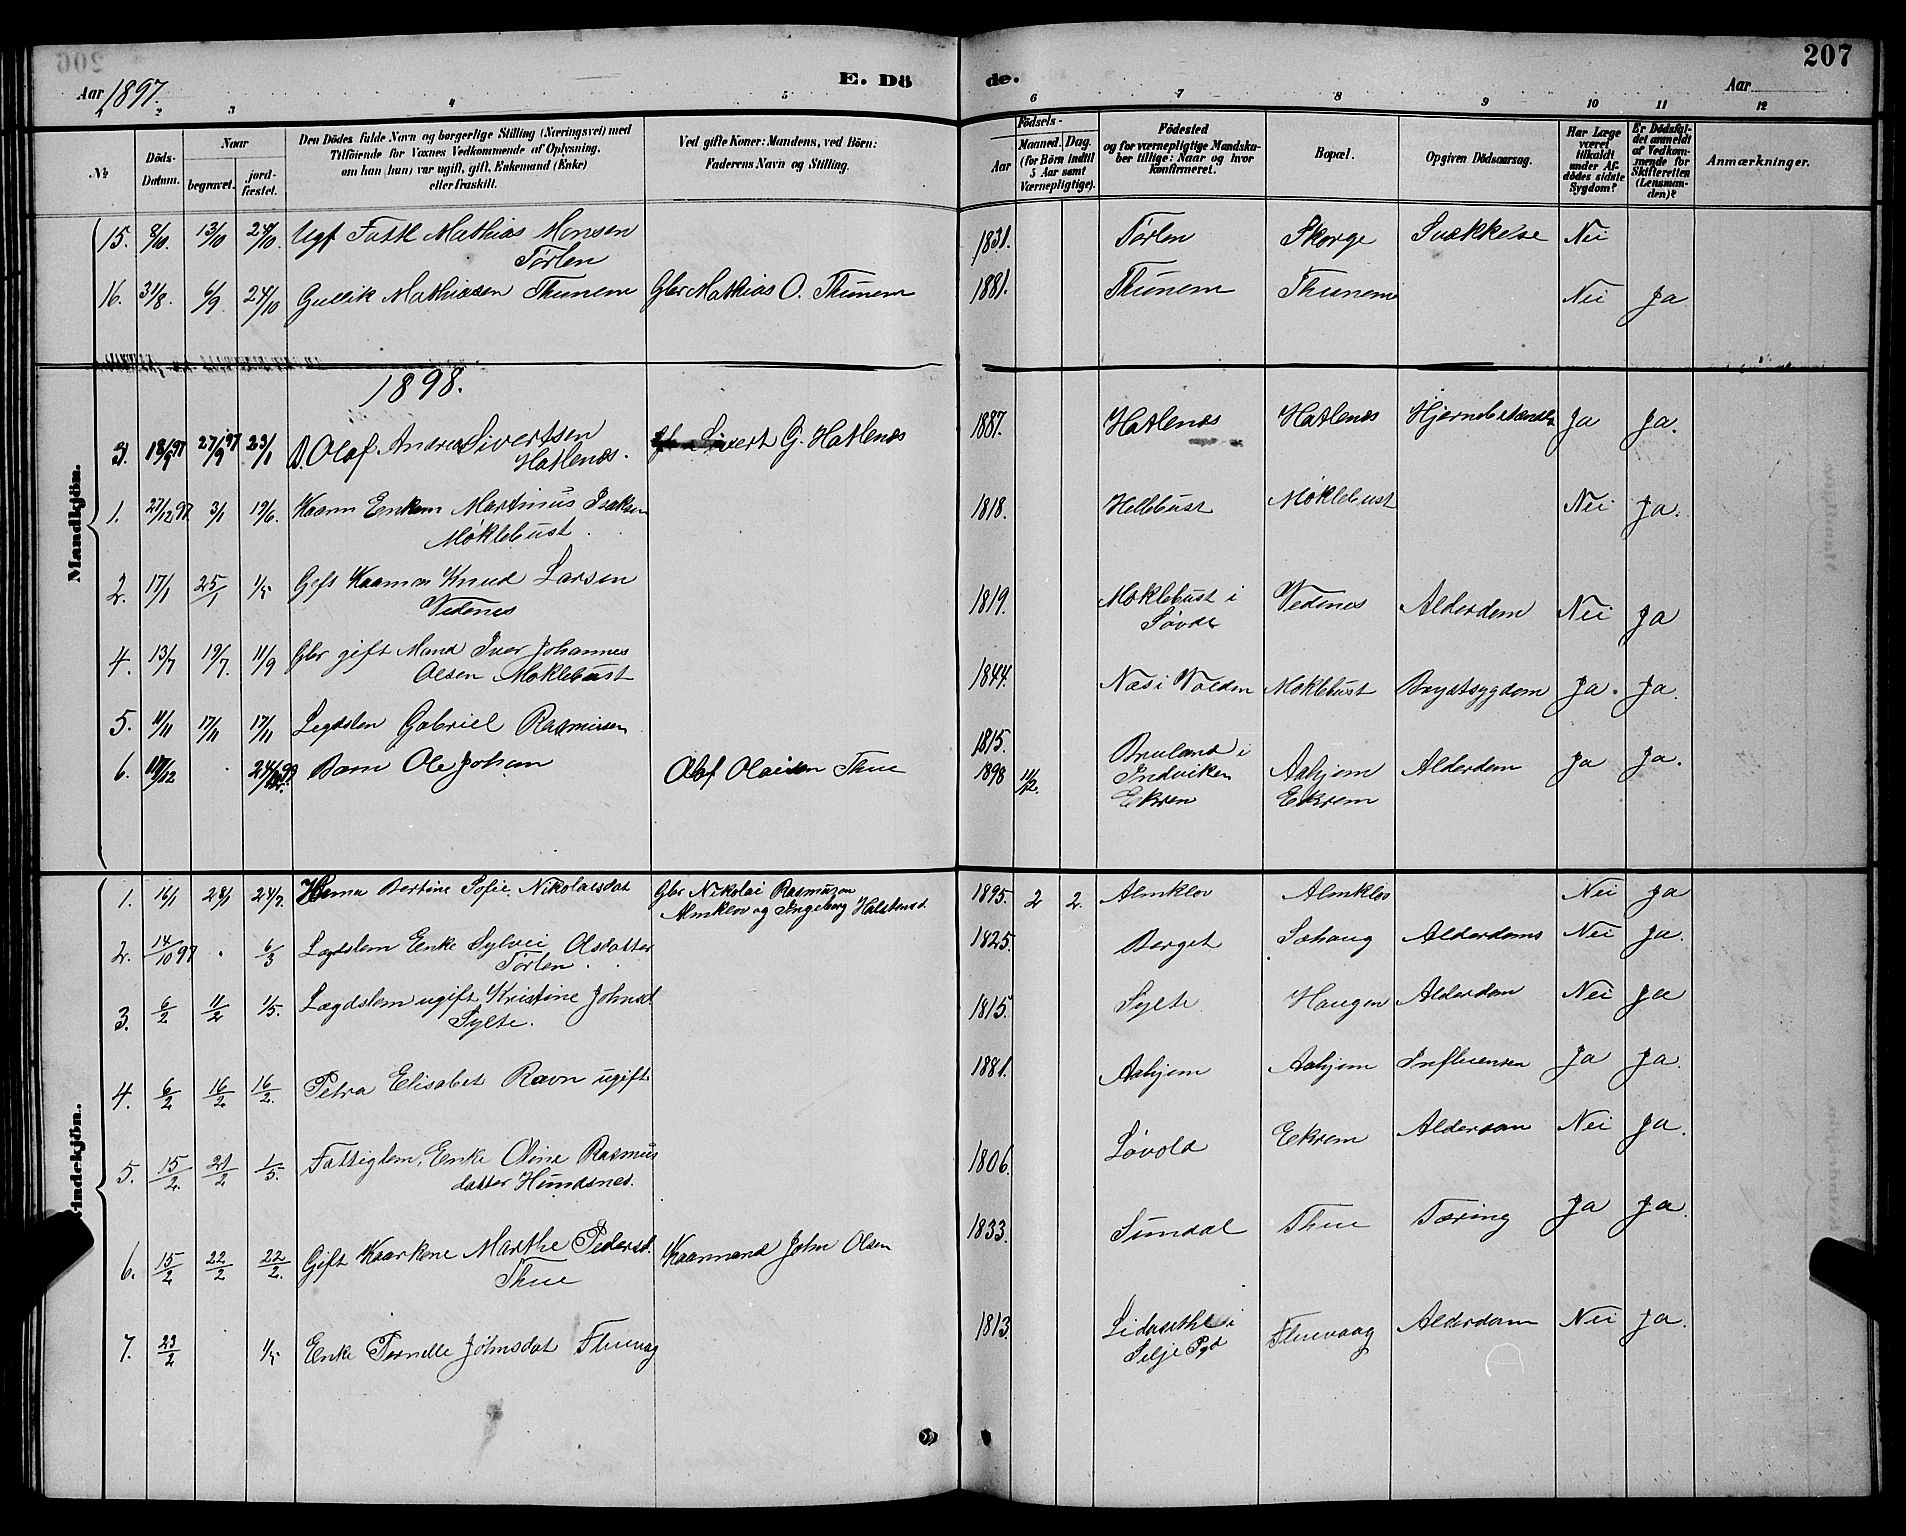 207
Aar 1897.
E. Dö
de.
Aar
1 2 3 4 5
6 7 8 9 10 11 12
No
Döds-
Datum.
Naar
begravet.
jord-
fæstet.
Den Dödes fulde Navn og borgerlige Stilling (Næringsvei) med
Tilföiende for Voxnes Vedkommende af Oplysning,
om han (hun) var ugift, gift, Enkemand (Enke)
eller fraskilt.
Ved gifte Koner: Mandens, ved Börn:
Faderens Navn og Stilling.
Födsels-
Aar
Maaned. Dag.
(for Börn indtil
5 Aar samt
Værnepligtige).
Födested
og for værnepligtige Mandska-
ber tillige: Naar og hvor
konfirmeret.
Bopæl.
Opgiven Dödsaarsag.
Har Læge
været
tilkaldt
under Af-
dödes sidste
Sygdom?
Er Dödsfal-
det anmeldt
af Vedkom-
mende for
Skifteretten
(Lensman-
den)?
Anmærkninger.
Mandkjön.
15. 8/10. 13/10 24/10. Ugf Fattl Mathias Monsen
Törlen
1831. Törlen Skorge Svækkelse Nei
16. 31/8. 6/9 24/10 Gullik Mathiasen Thunem Gbr Mathias O. Thunem 1881. Thunem Thunem Nei Ja
1898.
3. 18/9 97 27/9 97 23/1 D. Olaf Andreas Sivertsen
Hatlenes.
Sivert G. Hatlenes 1887. Hatlenes Hatlenes Ja Ja.
1. 27/12 97 3/1 19/6. Kaarm Enkem Martinus Isaksen
Möklebust.
1818. Hellebust Möklebust Nei Ja.
2. 17/1 25/1 1/5 Gift Kaarman Knud Larsen
Vedenes
1819. Moklebust i
Søvde
Vedenes Alderdom Nei Ja
4. 13/7 19/7. 11/9 Gbr gift Mand Iver Johannes
Olsen Moklebust
1844. Næs i Volden Moklebust Brystsygdom Ja. Ja.
5. 11/11 17/11 17/11 Legdslem Gabriel Rasmussen
1815. Bruland i
Indviken
Aahjem Alderdom Ja Ja.
6. Barn Ole Johan Olaf Olaisen Thue
1898 Ekrem Ekrem
Kvindekjön.
1. 16/1 28/1 24/7. Bertine Sofie Nikolaisdat Gbr Nikolai Rasmusen
Almklov og Ingeborg Halstensd
1895. 2 2. Almklov Almklov Nei Ja
2. 14/10 97 . 6/3 Legdslem Enke Sylvei Olsdatter
Törlen.
1825. Berget Alderdoms Nei Ja.
3. 6/2 11/2 1/5. Lægdslem ugift, Kristine Johnsd.
Sylte.
1815. Sylte Haugen Alderdom Nei Ja
4. 6/2 16/2 16/2. Petra Elisabet Ravn ugift
1881. Aahjem Aahjem Influensa Ja Ja.
5. 15/2. 21/2 1/5. Fattiglem, Enke Oline Rasmus
datter Hundsnes.
1806. Løvold Ekrem Alderdom Nei Ja.
6. 15/2 22/2 22/2. Gift Kaarkone Marthe Pedersd.
Thue
Kaarmand John Olsen
1833. Sundal Thue Tæring Ja Ja.
7. 23/2 1/5 Enke Pernelle Johnsdat Fluevag
1813. i
Selje Pgd
Fluevaag Alderdom Nei Ja.